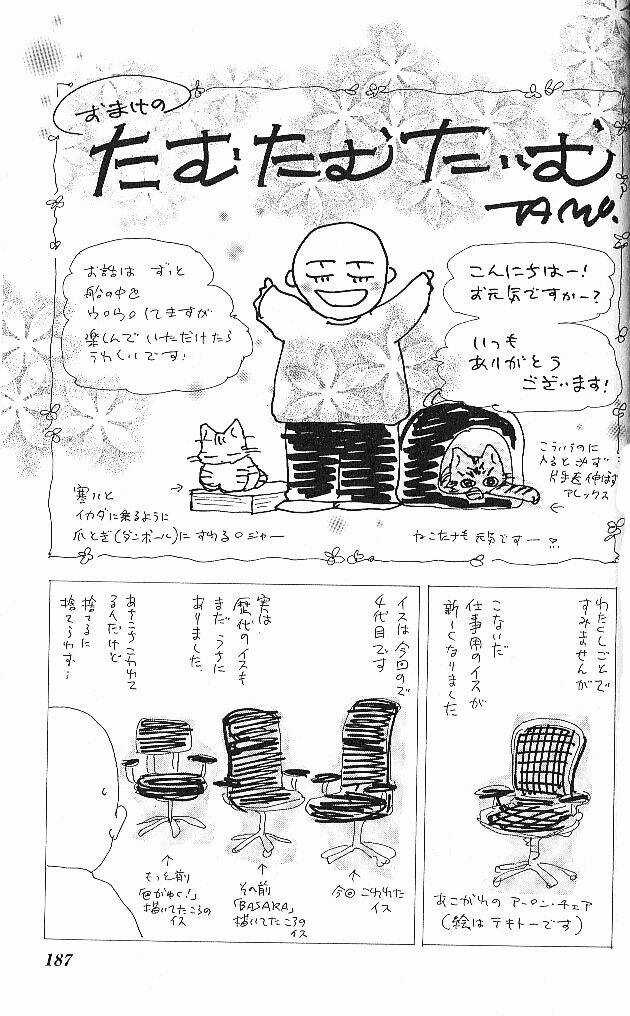 おまけの
たむたむたいむ
TAMU.
こんにちはー!
お元気ですかー?
いつも
ありがとう
ございます!
お話は ずっと
船の中を
してますが
楽しんでいただけたら
うれしいです!
こういうのに
入ると必ず
片手を伸ばす
アレックス
寒いと
イカダに乗るように
爪とぎ(ダンボール)に すわるロジャー
ねこたちも 元気ですー
わたくしごとで
すみませんが
こないだ
仕事用のイスが
新しくなりました
あこがれの アーロン・チェア
(絵はテキトーです)
イスは今回ので
4代目です
実は
歴代のイスも
まだ うちに
ありました
あちこちこわれて
るんだけど
捨てるに
捨てられず…
今回 こわれた
イス
その前
「BASARA」
描いてたころの
イス
もっと前
描いてたころの
イス
187